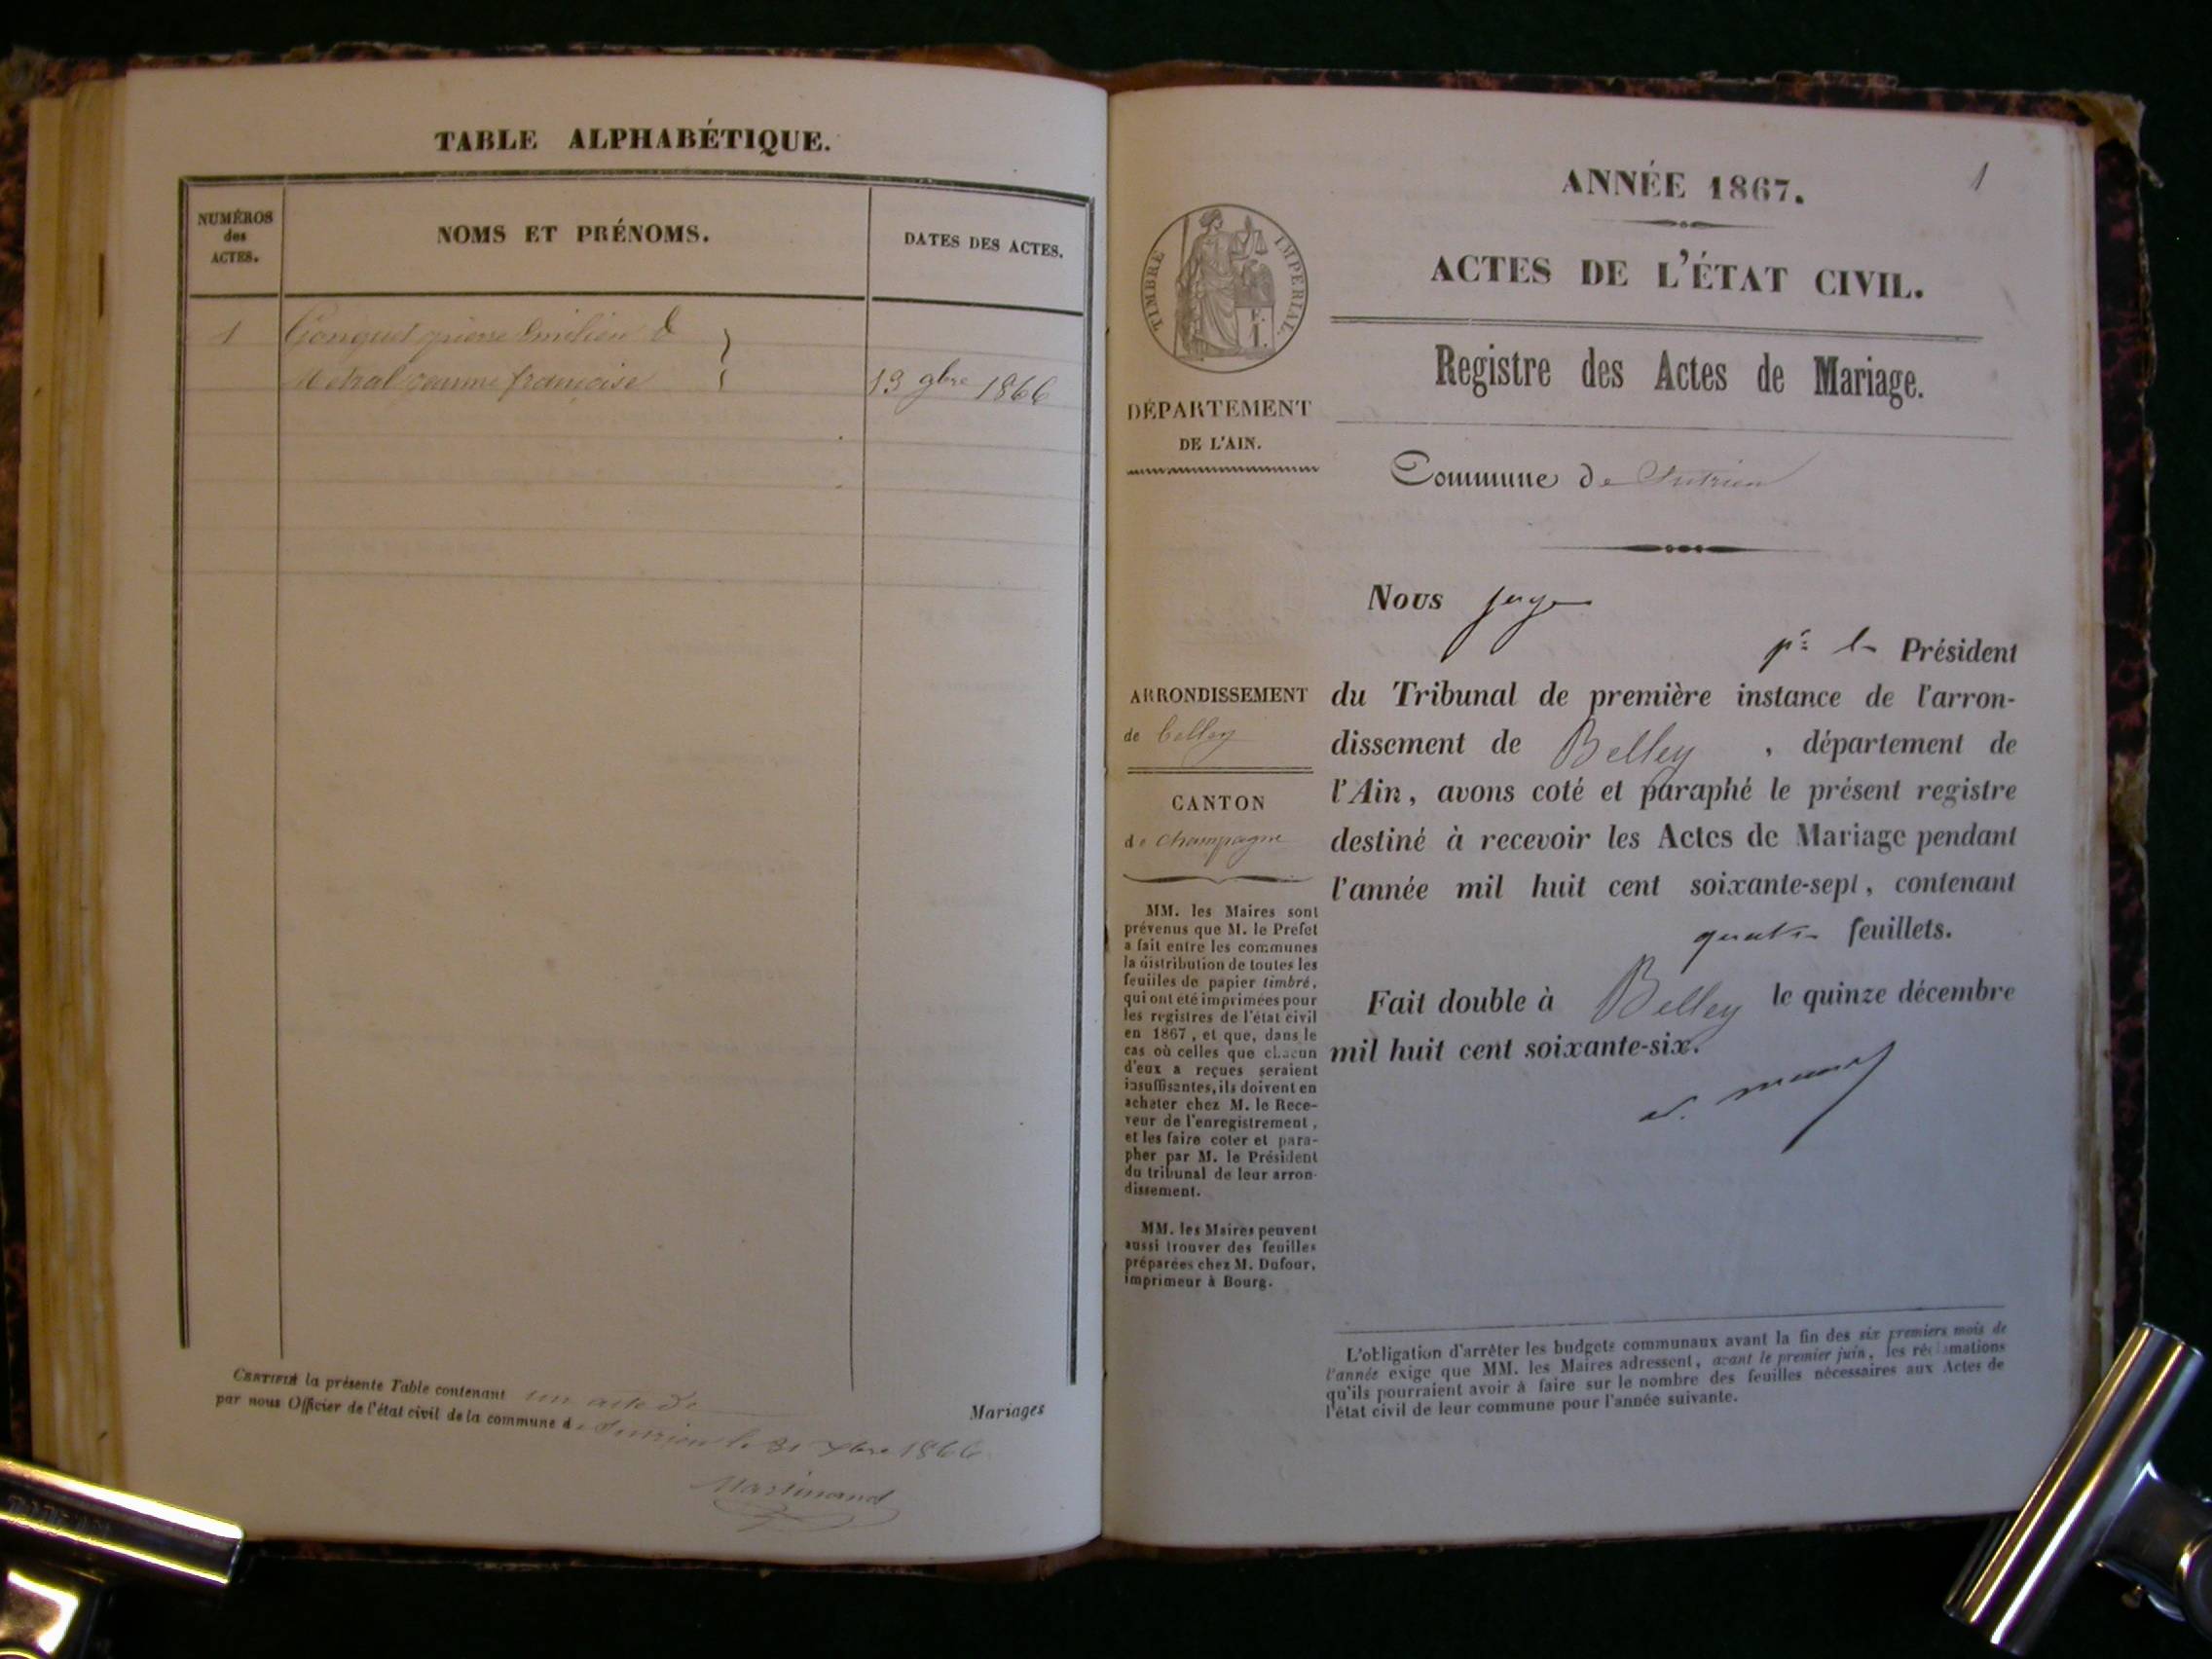 TABLE ALPHABÉTIQUE.
NUMÉROS
des
ACTES.
NOMS ET PRÉNOMS.
DATES DES ACTES.
1
Gonguet pierre Emilien &
Métral jeanne françoise
13 9bre 1866
CERTIFIÉ la présente Table contenant un acte de
Mariages
par nous Officier de l'état civil de la commune de Sutrieu le 31 Xbre 1866
Martinand
1
ANNÉE 1867.
ACTES DE L'ÉTAT CIVIL.
Registre des Actes de Mariage.
TIMBRE IMPERIAL.
DÉPARTEMENT
DE L'AIN.
Commune de Sutrieu
Nous juge
pr le Président
du Tribunal de première instance de l'arron-
dissement de Belley, département de
l'Ain, avons coté et paraphé le présent registre
destiné à recevoir les Actes de Mariage pendant
l'année mil huit cent soixante-sept, contenant
quatre feuillets.
Fait double à Belley le quinze décembre
mil huit cent soixante-six.
ARRONDISSEMENT
de belley
CANTON
de champagne
MM. les Maires sont
prévenus que M. le Préfet
a fait entre les communes
la distribution de toutes les
feuilles de papier timbré,
qui ont été imprimées pour
les registres de l'état civil
en 1867, et que, dans le
cas où celles que chacun
d'eux a reçues seraient
insuffisantes, ils doivent en
acheter chez M. le Rece-
veur de l'enregistrement,
et les faire coter et para-
pher par M. le Président
du tribunal de leur arron-
dissement.
MM. les Maires peuvent
aussi trouver des feuilles
préparées chez M. Dufour,
imprimeur à Bourg.
L'obligation d'arrêter les budgets communaux avant la fin des six premiers mois de
l'année exige que MM. les Maires adressent, avant le premier juin, les réclamations
qu'ils pourraient avoir à faire sur le nombre des feuilles nécessaires aux Actes de
l'état civil de leur commune pour l'année suivante.